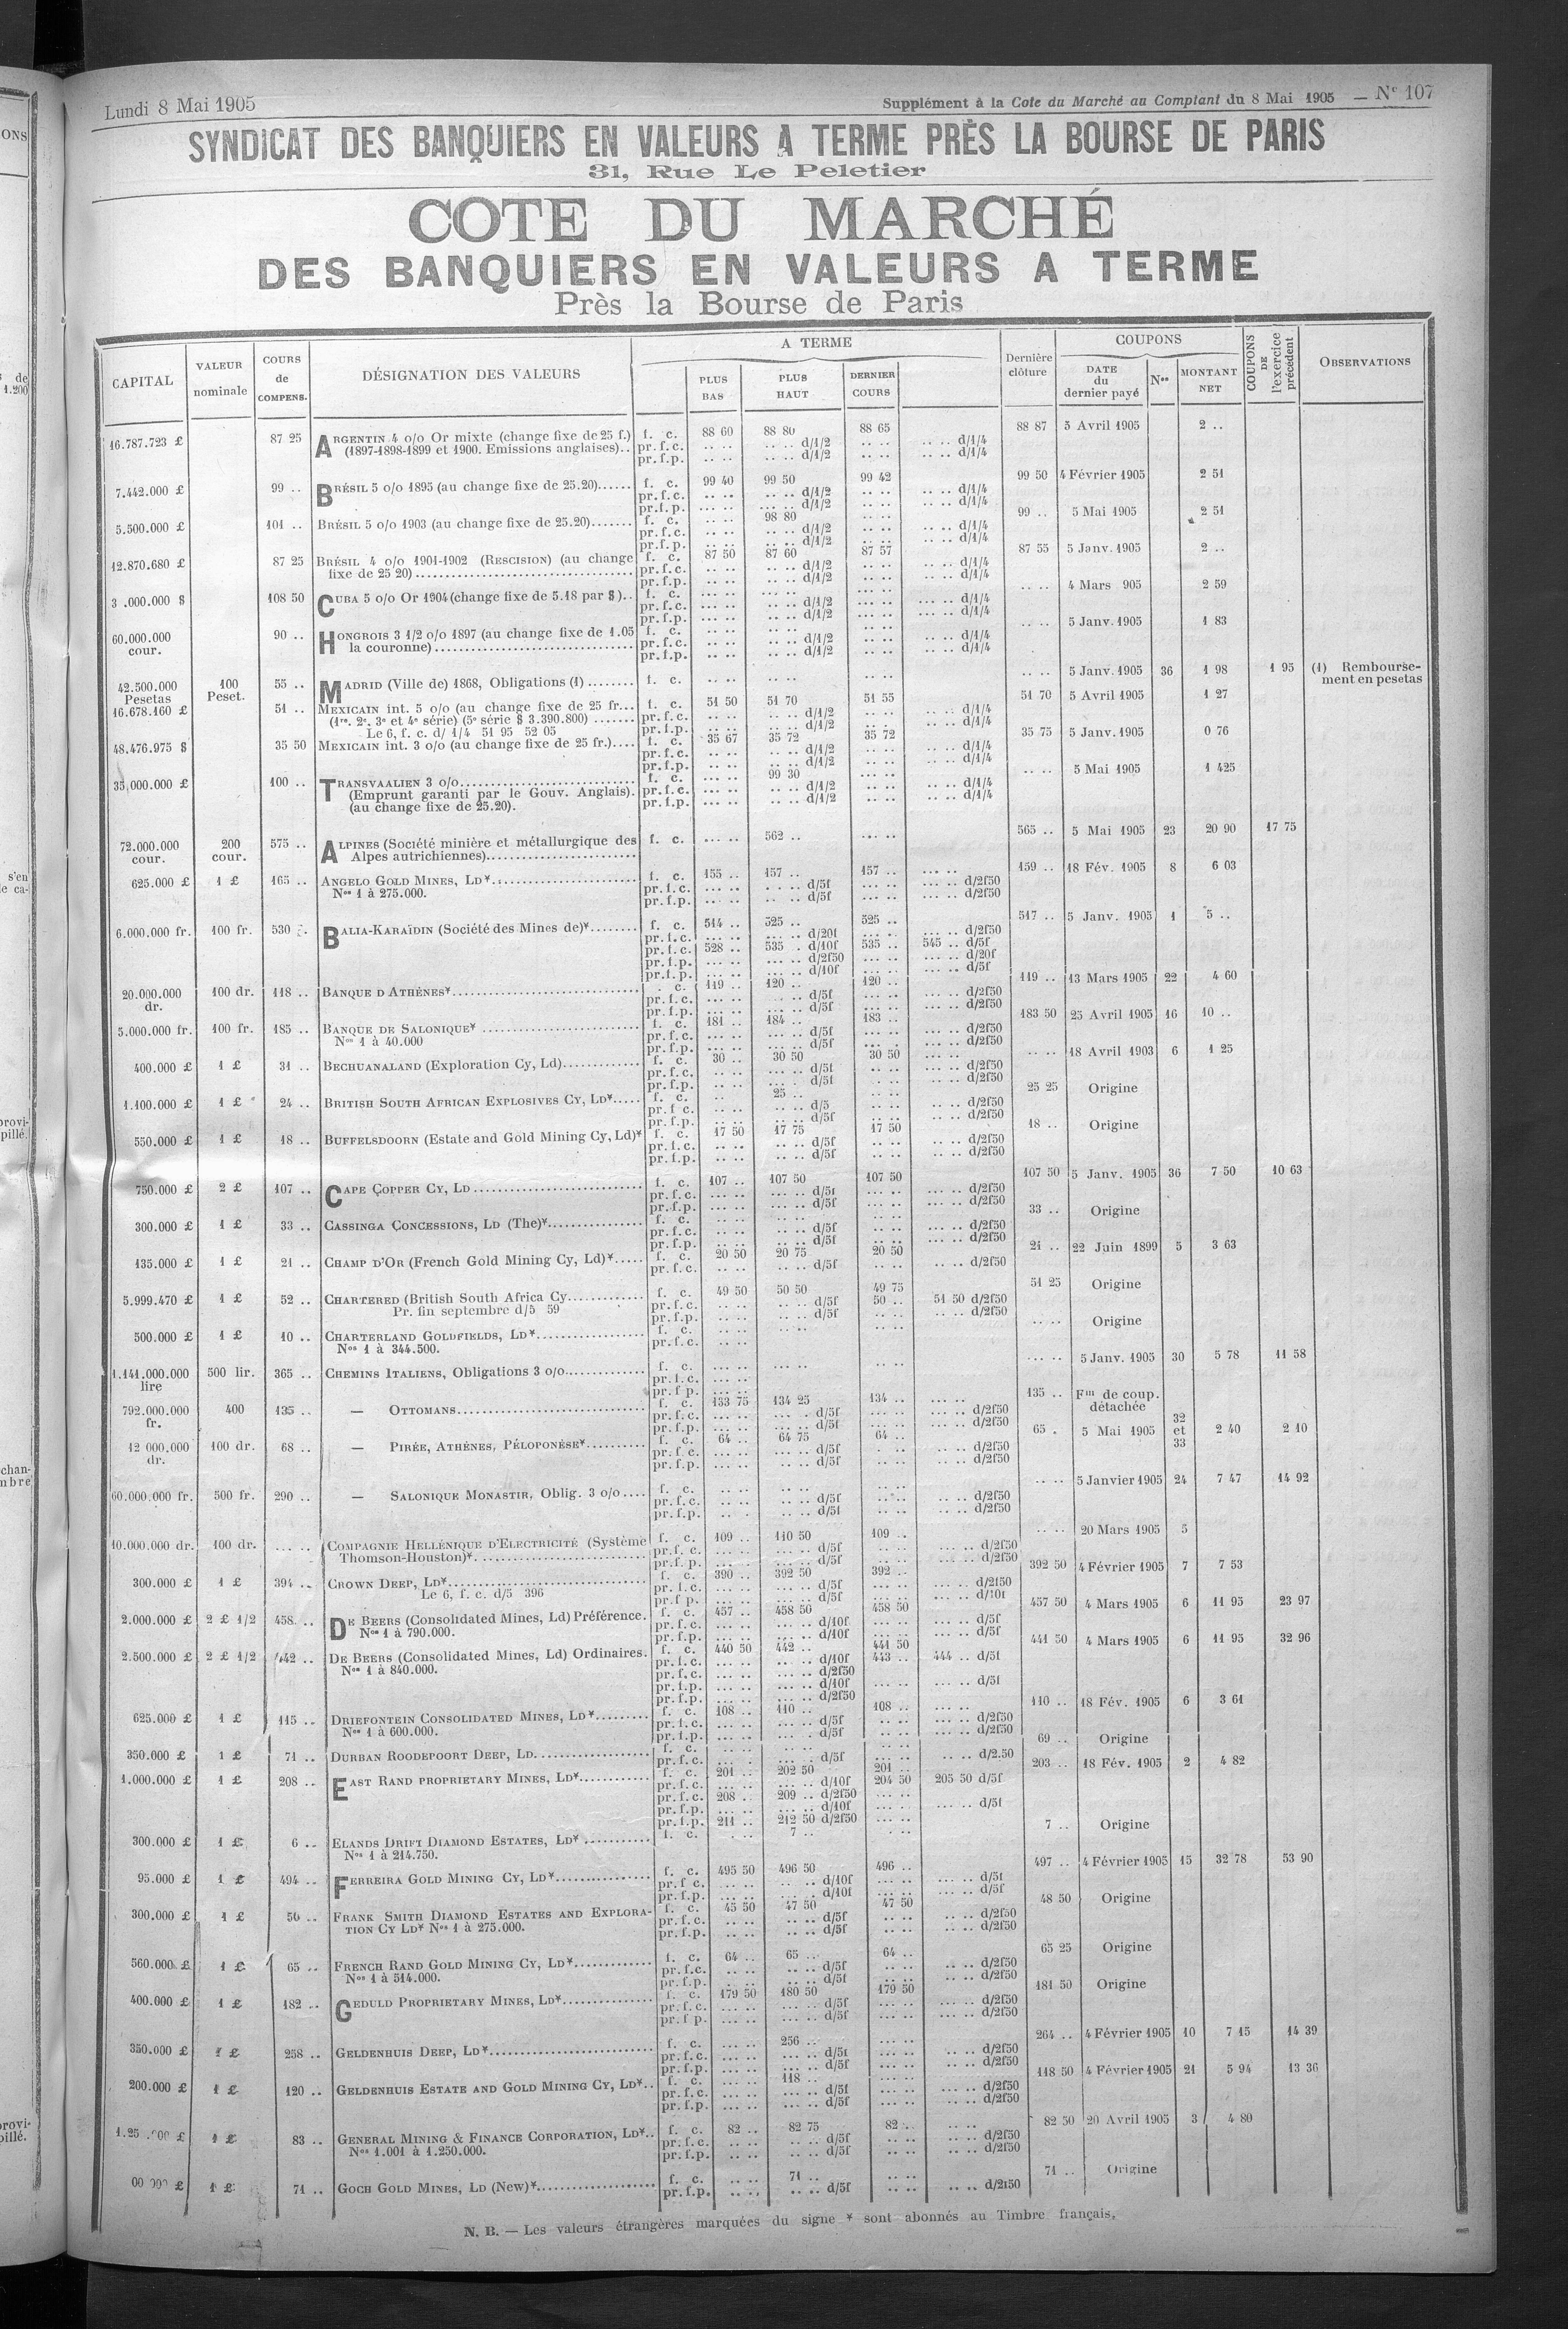 Lundi 8 Mai 1905
Supplément à la Cote du Marché au Comptant du 8 Mai 1905 — Nº 107
SYNDICAT DES BANQUIERS EN VALEURS A TERME PRÈS LA BOURSE DE PARIS
31, Rue Le Peletier
COTE DU MARCHÉ
DES BANQUIERS EN VALEURS A TERME
Près la Bourse de Paris
CAPITAL VALEUR nominale COURS de COMPENS. DÉSIGNATION DES VALEURS A TERME PLUS BAS PLUS HAUT DERNIER COURS Dernière clôture COUPONS DATE du dernier payé Nos MONTANT NET COUPONS DE l'exercice précédent OBSERVATIONS
16.787.723 £ 87 25 ARGENTIN 4 o/o Or mixte (change fixe de 25 f.) f. c. 88 60 88 80 88 65 88 87 5 Avril 1905 2 ..
(1897-1898-1899 et 1900. Emissions anglaises).. pr. f. c. .. .. .. .. d/1/2 .. .. .. .. d/1/4
pr. f. p. .. .. .. .. d/1/2 .. .. .. .. d/1/4
7.442.000 £ 99 .. BRÉSIL 5 o/o 1895 (au change fixe de 25.20)...... f. c. 99 40 99 50 99 42 99 50 4 Février 1905 2 51
pr. f. c. .. .. .. .. d/1/2 .. .. .. .. d/1/4
pr. f. p. .. .. .. .. d/1/2 .. .. .. .. d/1/4
5.500.000 £ 101 .. BRÉSIL 5 o/o 1903 (au change fixe de 25.20)....... f. c. .. .. 98 80 .. .. 99 .. 5 Mai 1905 2 51
pr. f. c. .. .. .. .. d/1/2 .. .. .. .. d/1/4
pr. f. p. .. .. .. .. d/1/2 .. .. .. .. d/1/4
12.870.680 £ 87 25 BRÉSIL 4 o/o 1901-1902 (RESCISION) (au change f. c. 87 50 87 60 87 57 87 55 5 Janv. 1905 2 ..
fixe de 25 20).................. pr. f. c. .. .. .. .. d/1/2 .. .. .. .. d/1/4
pr. f. p. .. .. .. .. d/1/2 .. .. .. .. d/1/4
.000.000 $ 108 50 CUBA 5 o/o Or 1904 (change fixe de 5.18 par $).. f. c. .. .. .. .. .. .. .. .. 4 Mars 905 2 59
pr. f. c. .. .. .. .. d/1/2 .. .. .. .. d/1/4
pr. f. p. .. .. .. .. d/1/2 .. .. .. .. d/1/4
60.000.000 cour. 90 .. HONGROIS 3 1/2 o/o 1897 (au change fixe de 1.05 f. c. .. .. .. .. .. .. .. .. 5 Janv. 1905 1 83
la couronne).................. pr. f. c. .. .. .. .. d/1/2 .. .. .. .. d/1/4
pr. f. p. .. .. .. .. d/1/2 .. .. .. .. d/1/4
42.500.000 Pesetas 100 Peset. 55 .. MADRID (Ville de) 1868, Obligations (1) ........ f. c. .. .. .. .. .. .. .. .. 5 Janv. 1905 36 1 98 1 95 (1) Remboursement en pesetas
16.678.160 £ 51 .. MEXICAIN int. 5 o/o (au change fixe de 25 fr... f. c. 51 50 51 70 51 55 51 70 5 Avril 1905 1 27
(1re, 2e, 3e et 4e série) (5e série $ 3.390.800) ....... pr. f. c. .. .. .. .. d/1/2 .. .. .. .. d/1/4
Le 6, f. c. d/ 1/4 51 95 52 05 pr. f. p. .. .. .. .. d/1/2 .. .. .. .. d/1/4
48.476.975 $ 35 50 MEXICAIN int. 3 o/o (au change fixe de 25 fr.).... f. c. 35 67 35 72 35 72 35 75 5 Janv. 1905 0 76
pr. f. c. .. .. .. .. d/1/2 .. .. .. .. d/1/4
pr. f. p. .. .. .. .. d/1/2 .. .. .. .. d/1/4
35.000.000 £ 100 .. TRANSVAALIEN 3 o/o.............. f. c. .. .. 99 30 .. .. .. .. 5 Mai 1905 1 425
(Emprunt garanti par le Gouv. Anglais). pr. f. c. .. .. .. .. d/1/2 .. .. .. .. d/1/4
(au change fixe de 25.20). pr. f. p. .. .. .. .. d/1/2 .. .. .. .. d/1/4
72.000.000 cour. 200 cour. 575 .. ALPINES (Société minière et métallurgique des f. c. .. .. 562 .. .. .. 565 .. 5 Mai 1905 23 20 90 17 75
Alpes autrichiennes)..............
625.000 £ 1 £ 165 .. ANGELO GOLD MINES, LD*.............. f. c. 155 .. 157 .. 157 .. .. .. 159 .. 18 Fév. 1905 8 6 03
Nos 1 à 275.000. pr. f. c. .. .. .. .. d/5f .. .. .. .. d/2f50
pr. f. p. .. .. .. .. d/5f .. .. .. .. d/2f50
6.000.000 fr. 100 fr. 530 .. BALIA-KARAÏDIN (Société des Mines de)*........ f. c. 514 .. 525 .. 525 .. 517 .. 5 Janv. 1905 1 5 ..
pr. f. c. .. .. .. .. d/20f .. .. .. .. d/2f50
pr. f. c. 528 .. 535 . d/10f 535 .. 545 .. d/5f
pr. f. p. .. .. .. .. d/2f50 .. .. .. .. d/20f
pr. f. p. .. .. .. .. d/10f .. .. .. .. d/5f
20.000.000 dr. 100 dr. 118 .. BANQUE D ATHÈNES*.............. . c. 119 .. 120 .. 120 .. 119 .. 13 Mars 1905 22 4 60
pr. f. c. .. .. .. .. d/5f .. .. .. .. d/2f50
pr. f. p. .. .. .. .. d/5f .. .. .. .. d/2f50
5.000.000 fr. 100 fr. 185 .. BANQUE DE SALONIQUE* .............. f. c. 181 .. 184 .. 183 .. 183 50 25 Avril 1905 16 10 ..
Nos 1 à 40.000 pr. f. c. .. .. .. .. d/5f .. .. .. .. d/2f50
pr. f. p. .. .. .. .. d/5f .. .. .. .. d/2f50
400.000 £ 1 £ 31 .. BECHUANALAND (Exploration Cy, Ld)............ f. c. 30 .. 30 50 30 50 .. .. .. .. 18 Avril 1903 6 1 25
pr. f. c. .. .. .. .. d/5f .. .. .. .. d/2f50
pr. f. p. .. .. .. .. d/5f .. .. .. .. d/2f50
1.100.000 £ 1 £ 24 .. BRITISH SOUTH AFRICAN EXPLOSIVES CY, LD*..... f. c. .. 25 .. .. .. 25 25 Origine
pr. f c. .. .. .. .. d/5 .. .. .. .. d/2f50
pr. f. p. .. .. .. .. d/5f .. .. .. .. d/2f50
550.000 £ 1 £ 18 .. BUFFELSDOORN (Estate and Gold Mining Cy, Ld)* f. c. 17 50 17 75 17 50 18 .. Origine
pr. f. c. .. .. .. .. d/5f .. .. .. .. d/2f50
pr. f. p. .. .. .. .. d/5f .. .. .. .. d/2f50
750.000 £ 2 £ 107 .. CAPE COPPER CY, LD .............. f. c. 107 .. 107 50 107 50 107 50 5 Janv. 1905 36 7 50 10 63
pr. f. c. .. .. .. .. d/5f .. .. .. .. d/2f50
pr. f. p. .. .. .. .. d/5f .. .. .. .. d/2f50
300.000 £ 1 £ 33 .. CASSINGA CONCESSIONS, LD (The)*............ f. c. .. .. .. .. .. .. 33 .. Origine
pr. f. c. .. .. .. .. d/5f .. .. .. .. d/2f50
pr. f. p. .. .. .. .. d/5f .. .. .. .. d/2f50
135.000 £ 1 £ 21 .. CHAMP D'OR (French Gold Mining Cy, Ld)*..... f. c. 20 50 20 75 20 50 21 .. 22 Juin 1899 5 3 63
pr. f. c. .. .. .. .. d/5f .. .. d/2f50
5.999.470 £ 1 £ 52 .. CHARTERED (British South Africa Cy............ f. c. 49 50 50 50 49 75 51 25 Origine
Pr. fin septembre d/5 59 pr. f. c. .. .. .. .. d/5f 50 .. 51 50 d/2f50
pr. f. p. .. .. .. .. d/5f .. .. .. .. d/2f50
500.000 £ 1 £ 10 .. CHARTERLAND GOLDFIELDS, LD*............ f. c. .. .. .. .. .. .. .. .. Origine
Nos 1 à 344.500. pr. f. c.
1.141.000.000 lire 500 lir. 365 .. CHEMINS ITALIENS, Obligations 3 o/o............ f. c. .. .. .. .. .. .. .. .. 5 Janv. 1905 30 5 78 11 58
pr. f. c. .. ..
pr. f p. .. ..
792.000.000 fr. 400 135 .. — OTTOMANS.............. f. c. 133 75 134 25 134 .. .. .. 135 .. Fm de coup. détachée
pr. f. c. .. .. . d/5f .. .. .. .. d/2f50
pr. f. p. .. .. .. .. d/5f .. .. .. .. d/2f50
12 000.000 dr. 100 dr. 68 .. — PIRÉE, ATHÈNES, PÉLOPONÈSE*.......... f. c. 64 .. 64 75 64 .. 65 . 5 Mai 1905 32 et 33 2 40 2 10
pr. f. c. .. .. .. .. d/5f . .. .. .. d/2f50
pr. f. p. .. .. .. .. d/5f .. .. .. .. d/2f50
60.000.000 fr. 500 fr. 290 .. — SALONIQUE MONASTIR, Oblig. 3 o/o.... f. c. .. .. .. .. .. .. .. .. 5 Janvier 1905 24 7 47 14 92
pr. f. c. .. .. .. .. d/5f .. .. .. .. d/2f50
pr. f. p. .. . .. .. d/5f .. .. .. .. d/2f50
10.000.000 dr. 100 dr. .. .. COMPAGNIE HELLÉNIQUE D'ELECTRICITÉ (Système f. c. 109 .. 110 50 109 .. .. .. 20 Mars 1905 5
Thomson-Houston)*.............. pr. f. c. .. .. .. .. d/5f .. .. .. .. d/2f50
pr. f. p. .. .. .. .. d/5f .. .. .. .. d/2f50
300.000 £ 1 £ 394 .. CROWN DEEP, LD*.............. f. c. 390 .. 392 50 392 .. 392 50 4 Février 1905 7 7 53
Le 6, f. c. d/5 396 pr. f. c. .. .. .. .. d/5f .. .. .. .. d/2f50
pr. f p. .. .. .. .. d/5f .. .. .. .. d/10f
2.000.000 £ 2 £ 1/2 458 .. DE BEERS (Consolidated Mines, Ld) Préférence. f. c. 457 .. 458 50 458 50 457 50 4 Mars 1905 6 11 95 23 97
Nos 1 à 790.000. pr. f. c. .. .. .. .. d/10f .. .. .. .. d/5f
pr. f. p. .. .. .. .. d/10f .. .. .. .. d/5f
2.500.000 £ 2 £ 1/2 442 .. DE BEERS (Consolidated Mines, Ld) Ordinaires. f. c. 440 50 442 .. 441 50 441 50 4 Mars 1905 6 11 95 32 96
Nos 1 à 840.000. pr. f. c. .. .. .. .. d/10f 443 .. 444 .. d/5f
pr. f. c. .. .. .. .. d/2f50
pr. f. p. .. .. .. .. d/10f .. .. .. .. d/5f
pr. f. p. .. .. .. .. d/2f50
625.000 £ 1 £ 115 .. DRIEFONTEIN CONSOLIDATED MINES, LD*......... f. c. 108 .. 110 .. 108 .. .. .. 110 .. 18 Fév. 1905 6 3 61
Nos 1 à 600.000. pr. f. c. .. .. .. .. d/5f .. .. .. .. d/2f50
pr. f. p. .. .. .. .. d/5f .. .. .. .. d/2f50
350.000 £ 1 £ 71 .. DURBAN ROODEPOORT DEEP, LD.............. f. c. .. .. .. .. .. .. 69 .. Origine
pr. f. c. .. .. .. .. d/5f .. .. .. .. d/2.50
1.000.000 £ 1 £ 208 .. EAST RAND PROPRIETARY MINES, LD*............ f. c. 201 .. 202 50 201 .. 203 .. 18 Fév. 1905 2 4 82
pr. f. c. .. .. .. .. d/10f 204 50 205 50 d/5f
pr. f. c. 208 .. 209 .. d/2f50 .. ..
pr. f. p. .. .. .. .. d/10f .. .. .. .. d/5f
pr. f. p. 211 .. 212 50 d/2f50 .. ..
300.000 £ 1 £ 6 .. ELANDS DRIFT DIAMOND ESTATES, LD* .......... f. c. . .. 7 .. . .. 7 .. Origine
Nos 1 à 214.750.
95.000 £ 1 £ 494 .. FERREIRA GOLD MINING CY, LD*.............. f. c. 495 50 496 50 496 .. 497 .. 4 Février 1905 15 32 78 53 90
pr. f c. .. .. .. .. d/10f .. .. .. .. d/5f
pr. f. p. .. .. .. .. d/10f .. .. .. .. d/5f
300.000 £ 1 £ 50 .. FRANK SMITH DIAMOND ESTATES AND EXPLORA- f. c. 45 50 47 50 47 50 48 50 Origine
TION CY LD* Nos 1 à 275.000. pr. f. c. .. .. .. .. d/5f .. .. .. .. d/2f50
pr. f. p. .. .. .. .. d/5f .. .. .. .. d/2f50
560.000 £ 1 £ 65 .. FRENCH RAND GOLD MINING CY, LD*............ f. c. 64 .. 65 .. 64 .. 65 25 Origine
Nos 1 à 514.000. pr. f.c. .. .. .. .. d/5f .. .. .. .. d/2f50
pr. f. p. .. .. .. .. d/5f .. .. .. .. d/2f50
400.000 £ 1 £ 182 .. GEDULD PROPRIETARY MINES, LD*.............. f. c. 179 50 180 50 179 50 181 50 Origine
pr. f. c. .. .. .. .. d/5f .. .. .. .. d/2f50
pr. f p. .. .. .. .. d/5f .. .. .. .. d/2f50
350.000 £ 1 £ 258 .. GELDENHUIS DEEP, LD*.............. f. c. .. .. 256 .. .. .. 264 .. 4 Février 1905 10 7 15 14 39
pr. f. c. .. .. .. .. d/5f .. .. .. .. d/2f50
pr. f. p. .. .. .. .. d/5f .. .. .. .. d/2f50
200.000 £ 1 £ 120 .. GELDENHUIS ESTATE AND GOLD MINING CY, LD*.. f. c. .. .. 118 .. .. .. 118 50 4 Février 1905 21 5 94 13 36
pr. f. c. .. .. .. .. d/5f .. .. .. .. d/2f50
pr. f. p. .. .. .. .. d/5f .. .. .. .. d/2f50
£ 1 £ 83 .. GENERAL MINING & FINANCE CORPORATION, LD*.. f. c. 82 .. 82 75 82 .. .. .. 82 50 20 Avril 1905 3 4 80
Nos 1.001 à 1.250.000. pr. f. c. .. .. .. .. d/5f .. .. .. .. d/2f50
pr. f. p. .. .. .. .. d/5f .. .. .. .. d/2f50
£ 1 £ 71 .. GOCH GOLD MINES, LD (New)*.............. f. c. .. .. 71 .. .. .. 71 .. Origine
pr. f. p. .. .. .. .. d/5f .. .. .. .. d/2f50
N. B. — Les valeurs étrangères marquées du signe * sont abonnés au Timbre français.